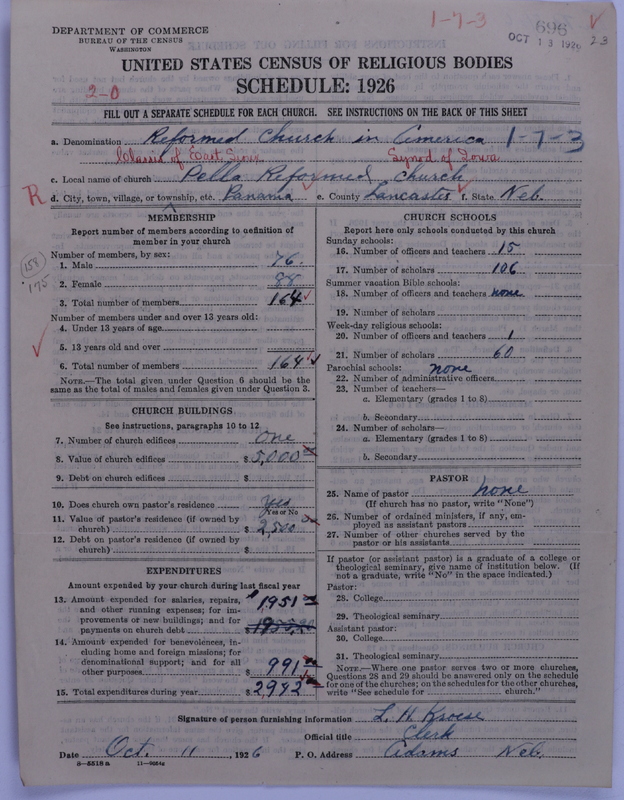 1-7-3
696
OCT 13 1926
23
DEPARTMENT OF COMMERCE
BUREAU OF THE CENSUS
WASHINGTON
UNITED STATES CENSUS OF RELIGIOUS BODIES
SCHEDULE: 1926
2-0
FILL OUT A SEPARATE SCHEDULE FOR EACH CHURCH. SEE INSTRUCTIONS ON THE BACK OF THIS SHEET
a. Denomination Reformed Church in America 1-7-3
Classis of East Sioux Synod of Iowa
c. Local name of church Pella Reformed Church
R
d. City, town, village, or township, etc. Panama e. County Lancaster f. State Neb.
MEMBERSHIP
Report number of members according to definition of member in your church
Number of members, by sex:
1. Male 76
2. Female 88
3. Total number of members 164
158
175
Number of members under and over 13 years old:
4. Under 13 years of age
5. 13 years old and over
6. Total number of members 164
NOTE.—The total given under Question 6 should be the
same as the total of males and females given under Question 3.
CHURCH BUILDINGS
See instructions, paragraphs 10 to 12
7. Number of church edifices One
8. Value of church edifices $5,000
9. Debt on church edifices $
10. Does church own pastor's residence Yes
Yes or No
11. Value of pastor's residence (if owned by
church) $2,500
12. Debt on pastor's residence (if owned by
church) $
EXPENDITURES
Amount expended by your church during last fiscal year
13. Amount expended for salaries, repairs,
and other running expenses; for im-
provements or new buildings; and for
payments on church debt $1951
14. Amount expended for benevolences, in-
cluding home and foreign missions; for
denominational support; and for all
other purposes $991
15. Total expenditures during year $2942
CHURCH SCHOOLS
Report here only schools conducted by this church
Sunday schools:
16. Number of officers and teachers 15
17. Number of scholars 106
Summer vacation Bible schools:
18. Number of officers and teachers none
19. Number of scholars
Week-day religious schools:
20. Number of officers and teachers 1
21. Number of scholars 60
Parochial schools: none
22. Number of administrative officers
23. Number of teachers—
a. Elementary (grades 1 to 8)
b. Secondary
24. Number of scholars—
a. Elementary (grades 1 to 8)
b. Secondary
PASTOR
25. Name of pastor none
(If church has no pastor, write "None")
26. Number of ordained ministers, if any, em-
ployed as assistant pastors
27. Number of other churches served by the
pastor or his assistants
If pastor (or assistant pastor) is a graduate of a college or
theological seminary, give name of institution below. (If
not a graduate, write "No" in the space indicated.)
Pastor:
28. College
29. Theological seminary
Assistant pastor:
30. College
31. Theological seminary
NOTE.—Where one pastor serves two or more churches,
Questions 28 and 29 should be answered only on the schedule
for one of the churches; on the schedules for the other churches,
write "See schedule for church."
Signature of person furnishing information L. H. Kroese
Official title Clerk
Date Oct. 11, 1926 P. O. Address Adams Neb.
8-5518a 11-9064a